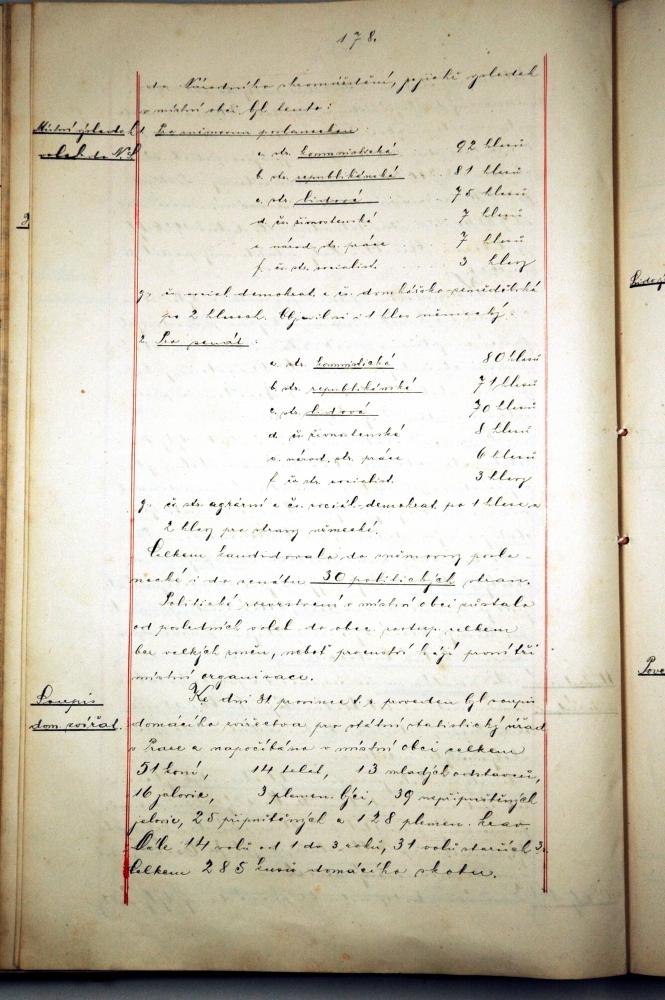 178.
do Národního shromáždění, jejichž výsledek
v místní obci byl tento:
Místní výsledek
voleb do N.S.
1. Do sněmovny poslanecken:
a. str. kommnistická 92 hlasů
b. str. republikánská 81 hlasů
c. str. lidová 75 hlasů
d. čs. živnostenská 7 hlasů
e. národ. str. práce 7 hlasů
f. čs. str. socialist. 3 hlasy
g. čs. social. demokrat. a čs. domkářsko-zemědělská
po 2 hlasech. Objevil se i 1 hlas německý.
2. Do senátu:
a. str. kommnistická 80 hlasů
b. str. republikánská 71 hlasů
c. str. lidová 70 hlasů
d. čs. živnostenská 8 hlasů
e. národ. str. práce 6 hlasů
f. čs. str. socialist. 3 hlasy
g. čs. str. agrární a čs. sociál.-demokrat. po 1 hlase a
2 hlasy pro strany německé.
Celkem kandidovalo do sněmovny posla-
necké i do senátu 30 politických stran.
Politické rozvrstvení v místní obci zůstalo
od posledních voleb do obec. zastup. celkem
bez velkých změn, neboť prvenství hájí první tři
místní organisace.
Soupis
dom. zvířat.
Ke dni 31 prosince t. r. proveden byl soupis
domácího zvířectva pro státní statistický úřad
v Praze a napočítáno v místní obci celkem
51 koní, 14 telat, 13 mladých odstavců,
16 jalovic, 3 plemen. býci, 39 nepřipuštěných
jalovic, 25 připuštěných a 128 plemen. krav.
Dále 14 volů od 1 do 3 roků, 31 volů starších 3.
Celkem 285 kusů domácího skotu.